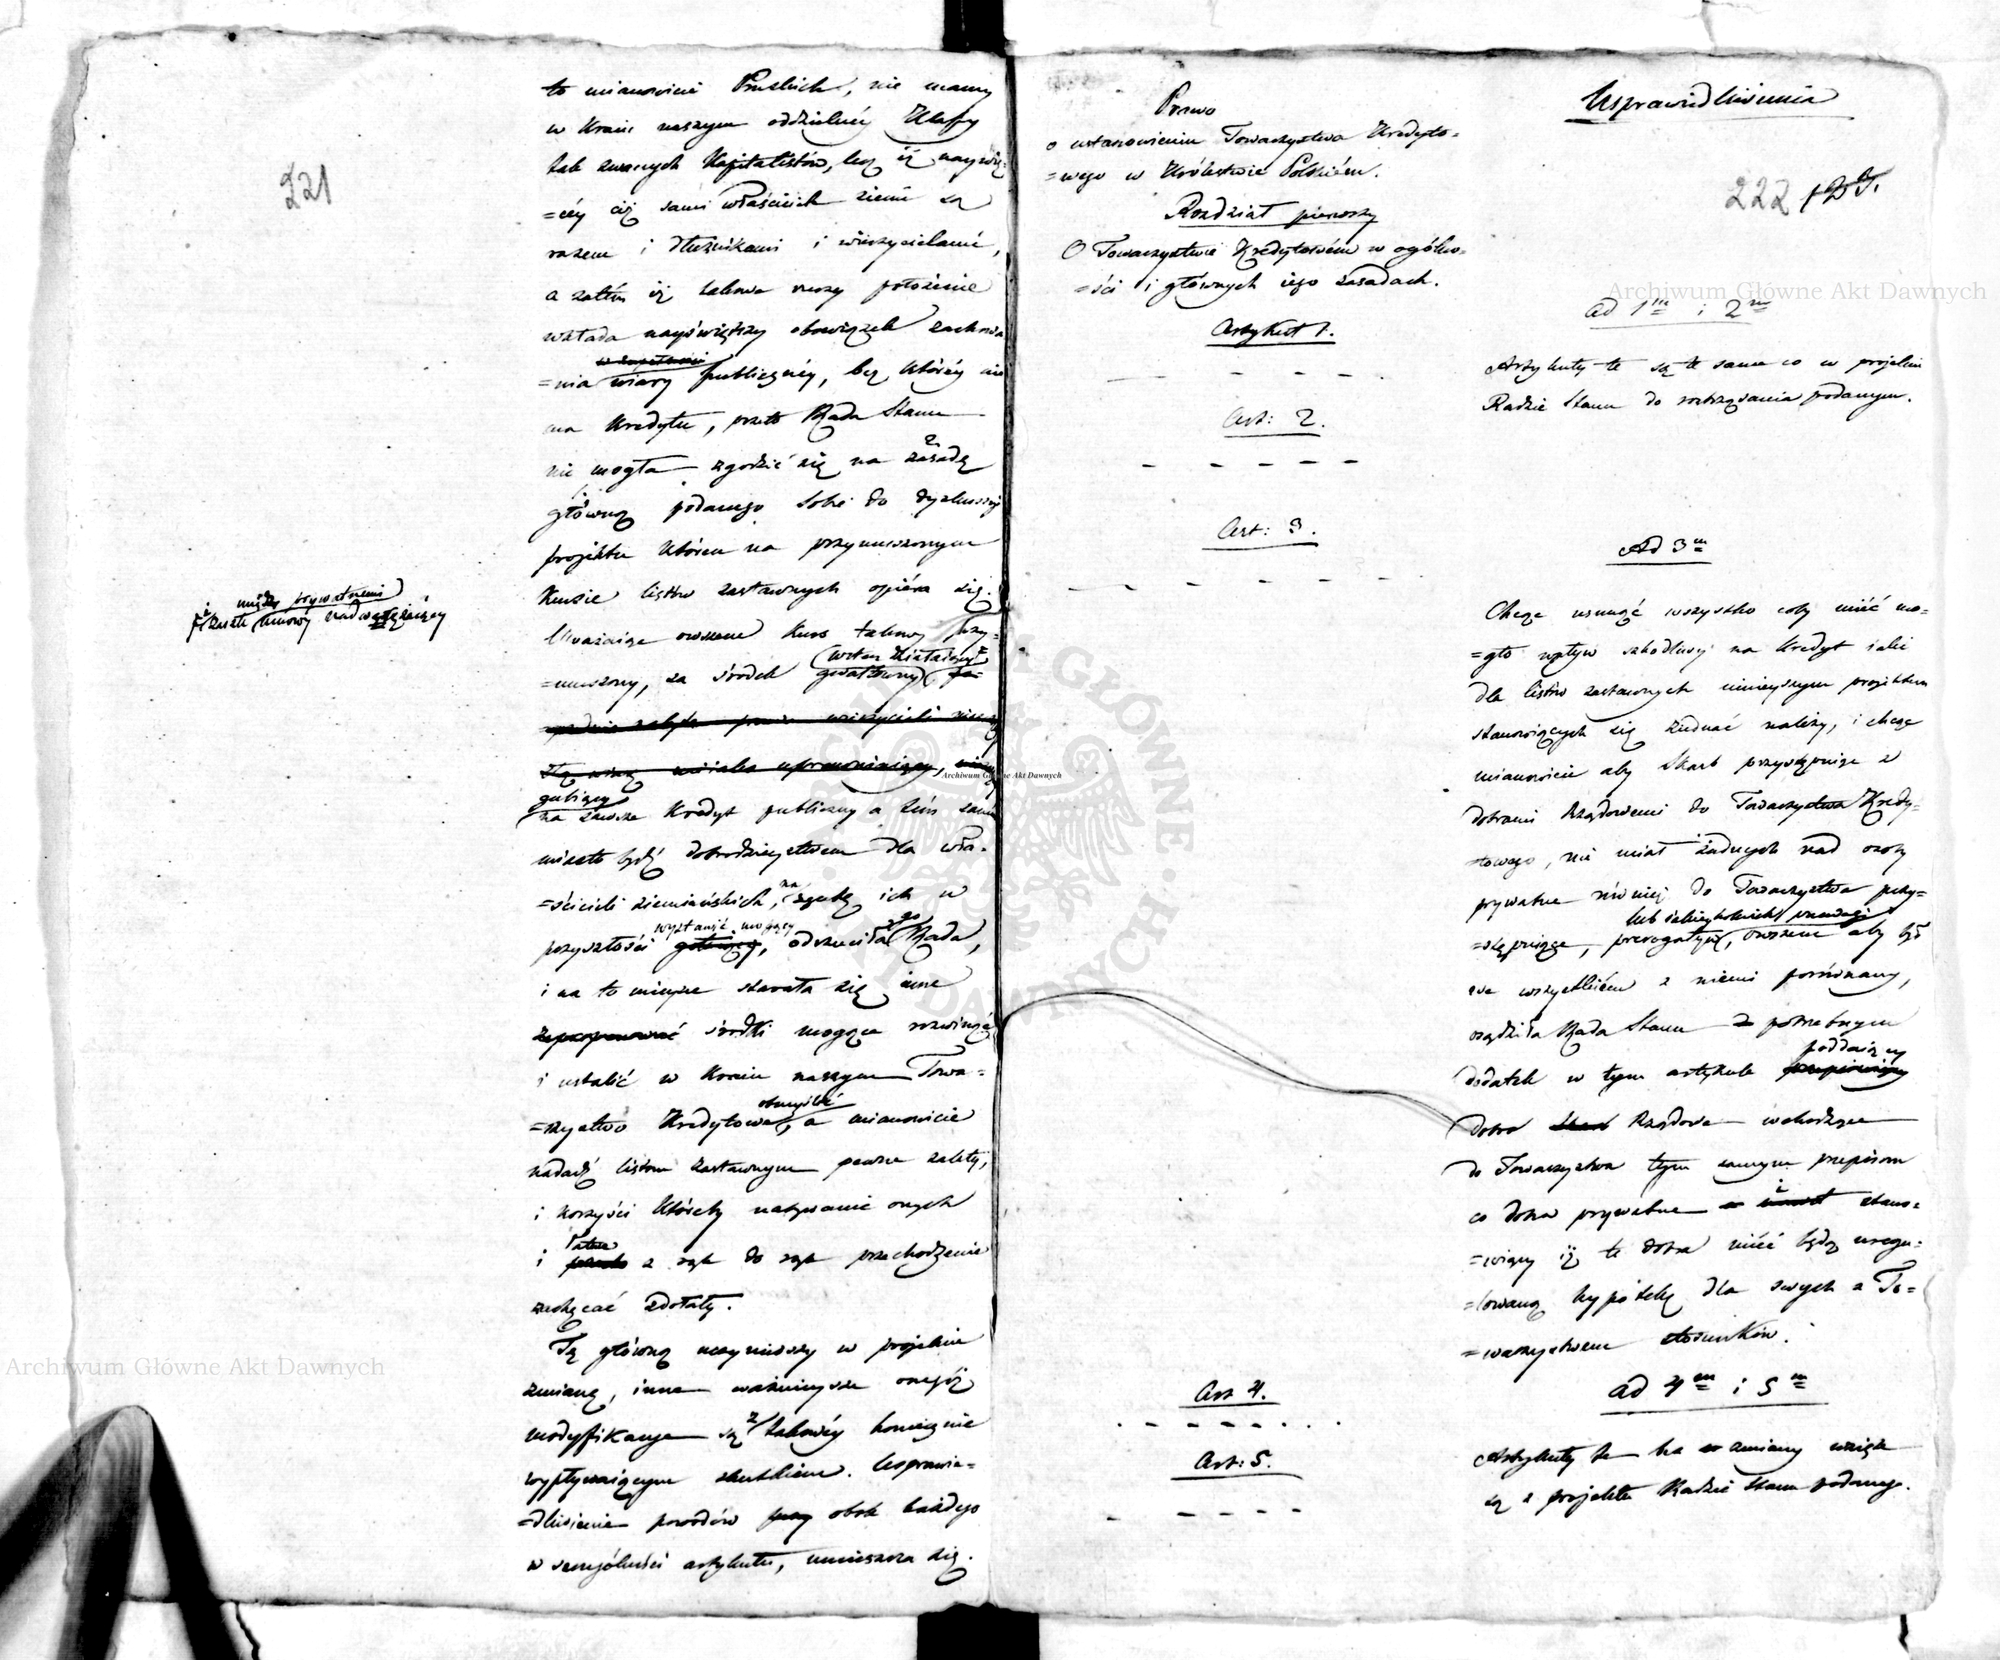 221
to mianowicie Pruskich, nie mamy
w Kraiu naszym oddzielnéy Klassy
tak zwanych Kapitalistów, lecz iż naywię-
=céy ciż sami właściciele ziemi są
razem i dłużnikami i wierzycielami,
a zatém iż takowe rzeczy położenie
wkłada nayświętszy obowiązek zachowa
=nia wiary publicznéy, bez któréy nie
ma Kredytu, przeto Rada Stanu
nie mogła zgodzić się na zasadę
główną podanego Sobie do dyskussyi
projektu którem na przymuszonym
Kursie listów zastawnych opiéra się.
Uważaiąc owszem Kurs takowy przy-
=muszony, za środek gwałtowny wstecz działaiący
i między prywatnemi
umowy nadwerężaiący
gubiący
na zawsze Kredyt publiczny a tém samém
miasto bydź dobrodzieystwem dla wła-
=ścicieli ziemiańskich, na zgubę ich w
przyszłości wystawić mogący, odrzuciła go Rada,
i na to mieysce starała się inne
środki mogące rozwinąć
i ustalić w Kraiu naszym Towa-
=rzystwo Kredytowe obmyślić, a mianowicie
nadać listom zastawnym pewne zalety,
i korzyści któreby nabywanie onych
i łatwe z rąk do rąk przechodzenie
zachęcać zdołały.
Tę główną uczyniwszy w projekcie
zmianę, inne ważnieysze onegóż
modyfikacye są z takowéy koniecznie
wypływaiącym skutkiem. Usprawie-
=dliwienie powodów obok każdego
w szczególności artykułu, umieszcza się.
Prawo
o ustanowieniu Towarzystwa Kredyto-
=wego w Królestwie Polskiém.
Rozdział pierwszy
O Towarzystwie Kredytowém w ogólno-
=ści i głównych iego zasadach.
Artykuł 1.
Art: 2.
Art: 3.
Art 4.
Art: 5.
Usprawiedliwienia
222
ad 1m i 2m
Artykuły te są te same co w projekcie
Radzie Stanu do roztrząsania podanym.
Ad 3m
Chcąc usunąć wszystko coby mieć mo-
=gło wpływ szkodliwy na Kredyt iaki
dla listów zastawnych ninieyszym projektem
stanowiących się ziednać należy, i chcąc
mianowicie aby Skarb przystępuiąc z
dobrami Rządowemi do Towarzystwa Kredy-
=towego, nie miał żadnych nad osoby
prywatne równiéż do Towarzystwa przy-
=stępuiące, prerogatyw lub iakieykolwiek przewagi, owszem aby był
we wszystkiém z niemi porównany,
osądziła Rada Stanu potrzebnym
dodatek w tym artykule poddaiący
dobra Rządowe wchodzące
do Towarzystwa tym samym przepisom
co dobra prywatne i stano-
=wiący iż te dobra mieć będą uregu-
=lowaną hypotekę dla swych z To-
=warzystwem stosunków.
ad 4m i 5m
Artykuły te bez zmiany wzięte
są z projektu Radzie Stanu podanego.
Archiwum Główne Akt Dawnych
Archiwum Główne Akt Dawnych
Archiwum Główne Akt Dawnych